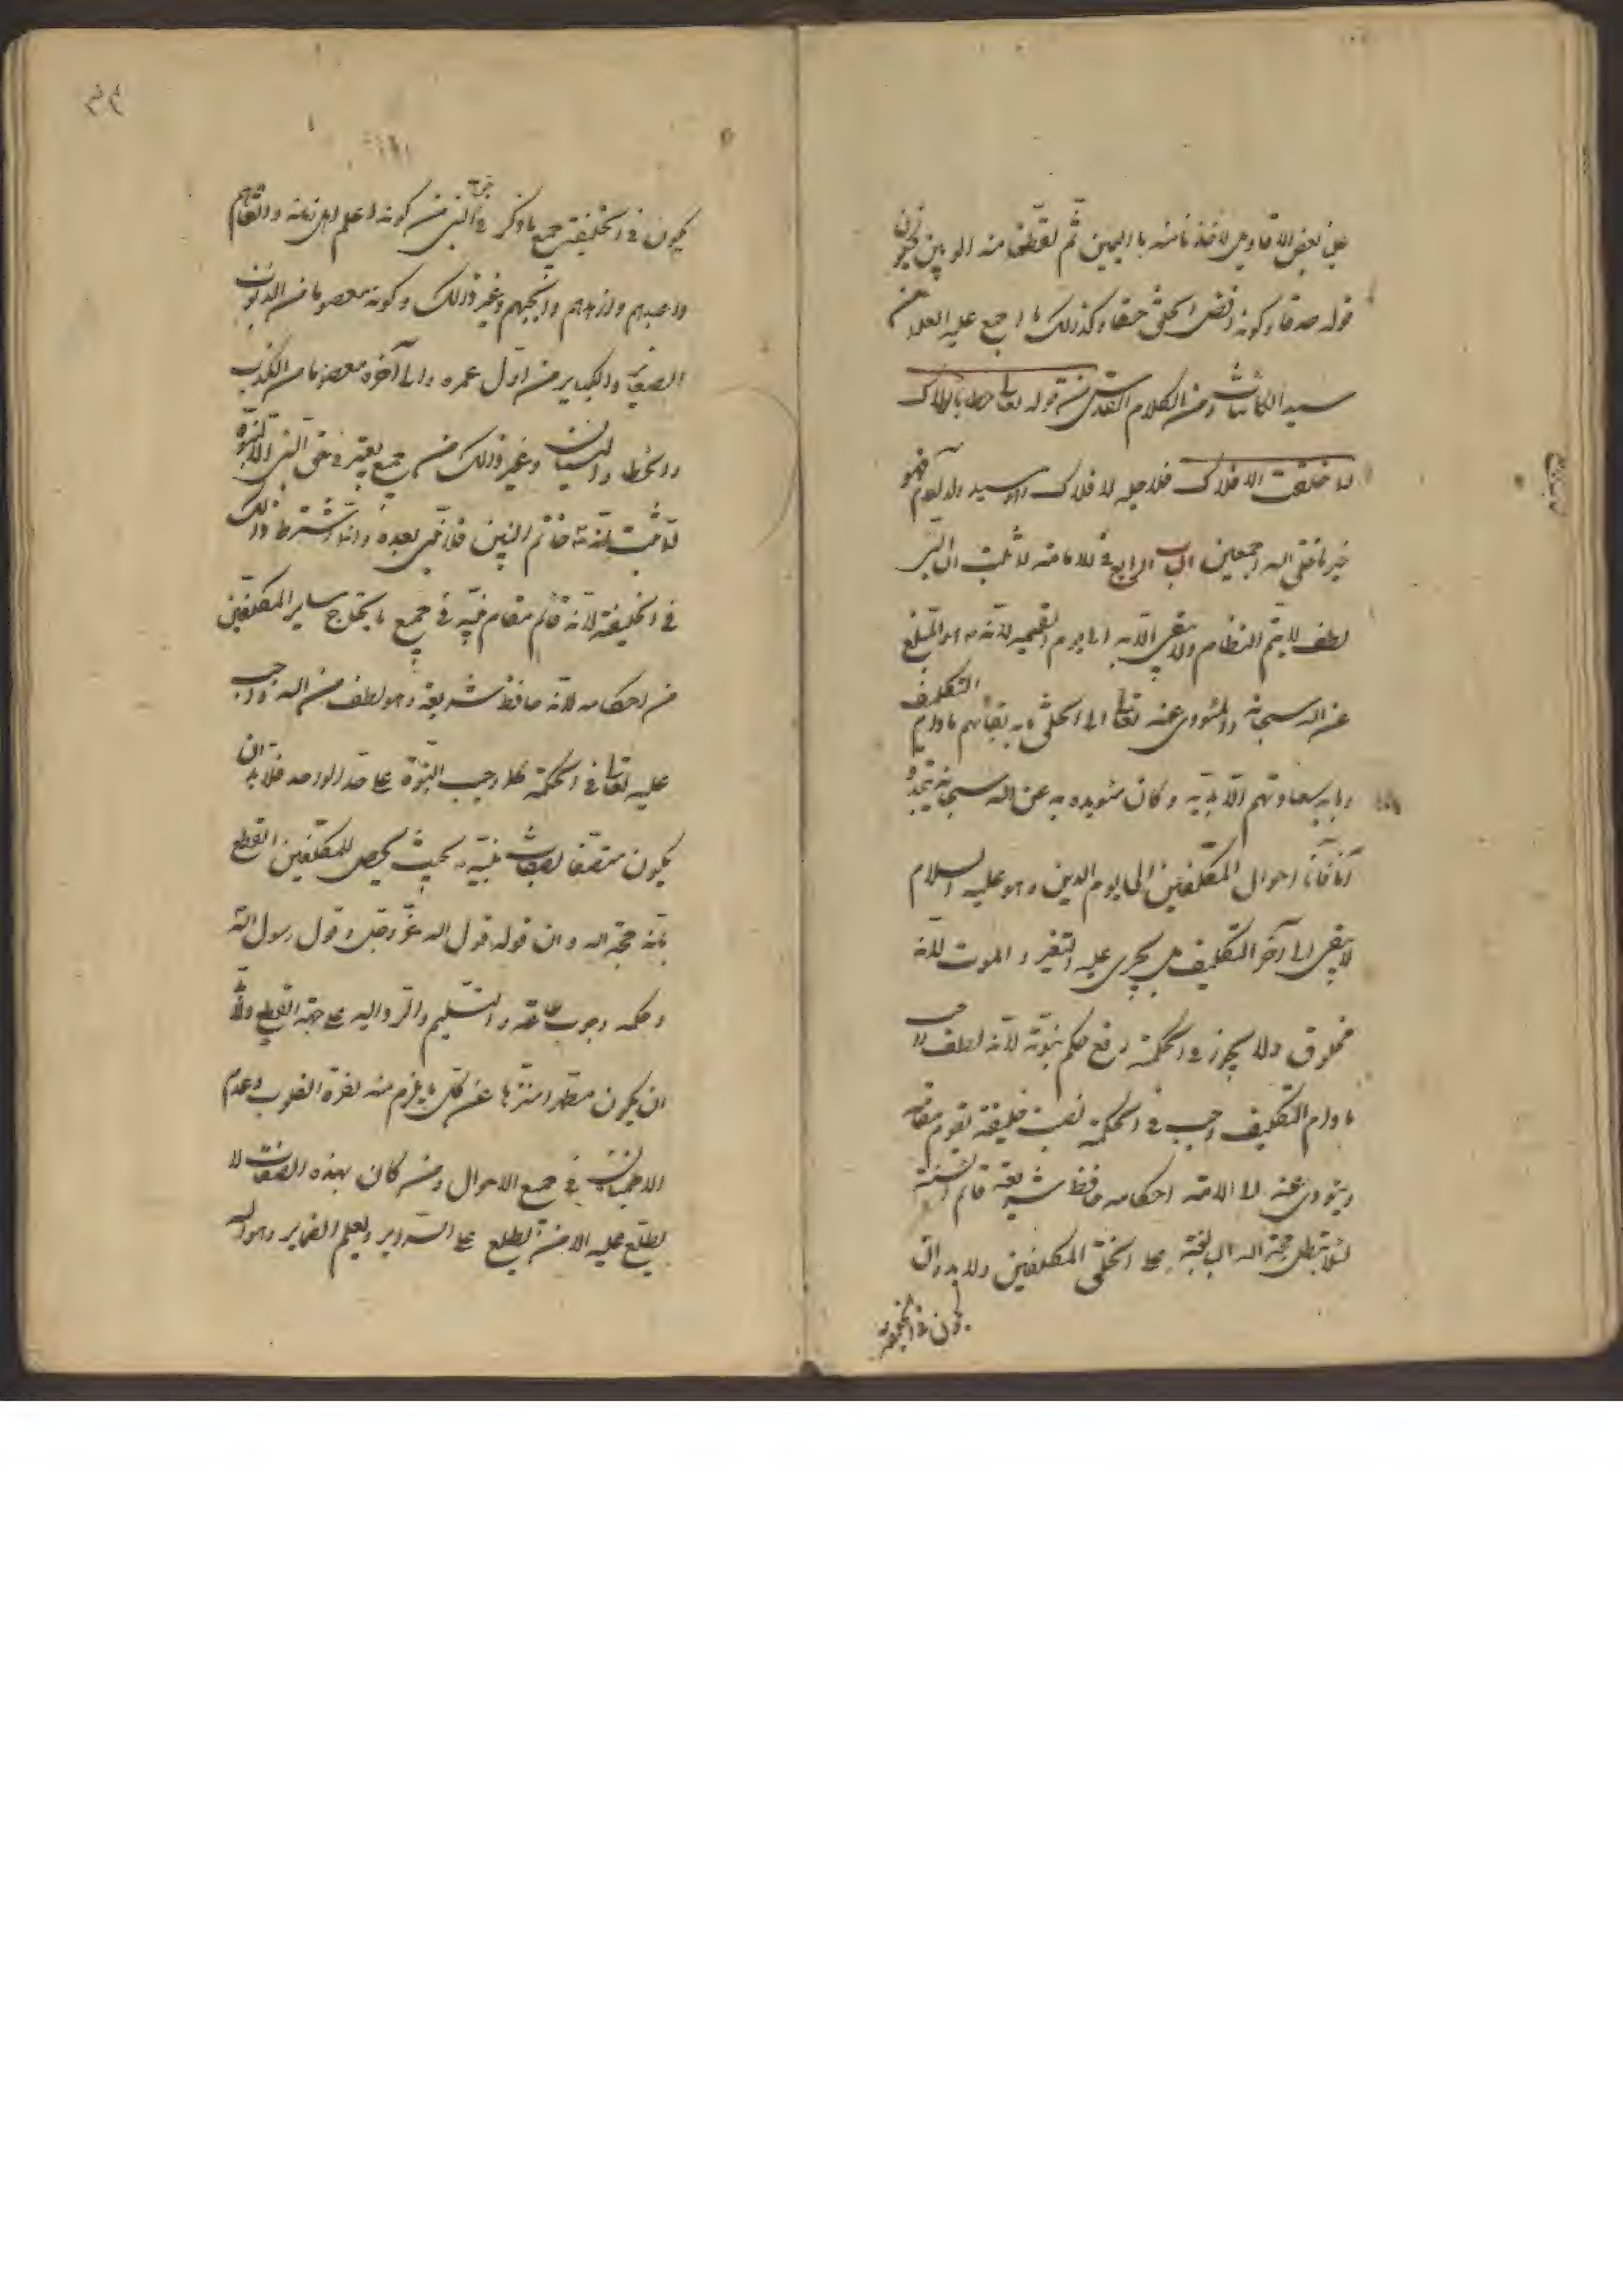 علينا بعض الاقاويل لاخذنا منه باليمين ثم لقطعنا منه الوتين فيكون
قوله صدقا وكونه افضل الخلق حقا وكذلك ما اجمع عليه العلماء من
سيد الكائنات ومن الكلام القدسى من قوله تعالى خطابا لولاك
لما خلقت الافلاك فلاجله الافلاك وهو سيد ولد آدم فهو
خير ما خلق الله اجمعين الباب الرابع فى الامامة لما ثبت ان النبى
لطف لا يتم النظام ولا يبقى الا به الى يوم القيمة لانه هو المبلغ
عن الله سبحانه والمؤدى عنه تعالى الى الخلق ما به بقائهم ما دام التكليف
وما به سعادتهم الابدية وكان ما يؤديه عن الله سبحانه يتجدد
آنا فآنا احوال المكلفين الى يوم الدين وهو عليه السلام
لا يبقى الى آخر التكليف بل يجرى عليه التغير والموت لانه
مخلوق ولا يجوز فى الحكمة رفع حكم نبوته لانه لطف واجب
ما دام التكليف وجب فى الحكمة نصب خليفة يقوم مقامه
ويؤدى عنه الى الامة احكامه حافظ شريعته قائم بسنته
لئلا تبطل حجة الله البالغة على الخلق المكلفين ولا بد وان
يكون فى الخليفة
٣٩
يكون فى الخليفة جميع ما ذكر فى النبى من كونه اعلم اهل زمانه واتقاهم
واعبدهم وازهدهم وانجبهم وغير ذلك وكونه معصوما من الذنوب
الصغاير والكباير من اول عمره والى آخره معصوما من الكذب
والخطاء والنسيان وغير ذلك من جميع ما يعتبر فى حق النبى الا النبوة
لما ثبت انه خاتم النبيين فلا نبى بعده وانما اشترط ذلك
فى الخليفة لانه قائم مقام نبيه فى جميع ما يحتاج ساير المكلفين
من احكامه لانه حافظ شريعته وهو لطف من الله واجب
عليه تعالى فى الحكمة كما وجب النبوة على حد واحد فلا بد ان
يكون متصفا بصفات نبيه بحيث يحصل للمكلفين القطع
بانه حجة الله وان قوله قول الله عز وجل وقول رسول الله
وحكمه وجوب طاعته والتسليم والرد اليه على جهة القطع ولا بد
ان يكون مطهرا منزها عن كل ما يلزم منه نفرة القلوب وعدم
الاطمينان فى جميع الاحوال ومن كان بهذه الصفات لا
يطلع عليه الا من يطلع على السراير ويعلم الضماير وهو الله